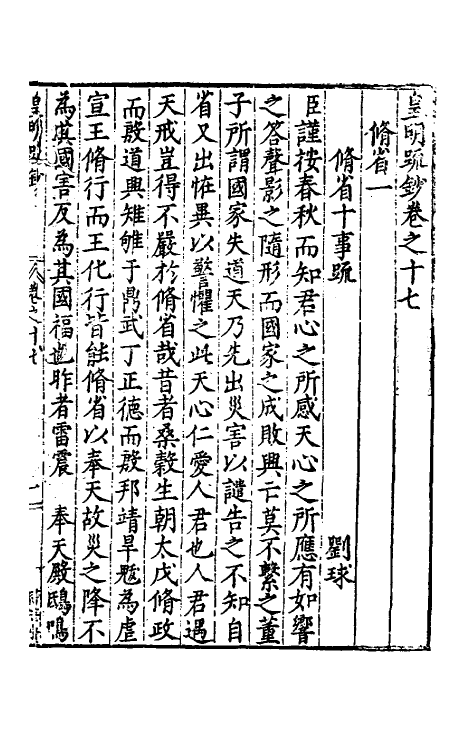 皇明疏鈔卷之十七
脩省一
脩省十事疏 劉球
臣謹按春秋而知君心之所感天心之所應有如響
之答聲影之隨形而國家之成敗興亡莫不繫之董
子所謂國家失道天乃先出災害以譴告之不知自
省又出恠異以警懼之此天心仁愛人君也人君遇
天戒豈得不嚴於脩省哉昔者桑穀生朝太戊脩政
而殷道興雉雊于鼎武丁正德而殷邦靖旱魃為虐
宣王脩行而王化行皆能脩省以奉天故災之降不
為其國害反為其國福也昨者雷震 奉天殿鴟鳴
皇明疏鈔 卷之十七